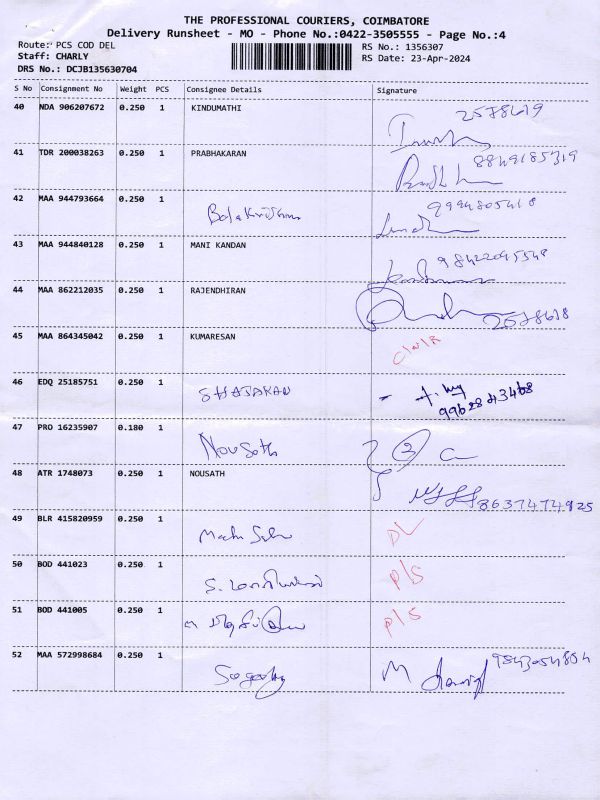 THE PROFESSIONAL COURIERS, COIMBATORE
Delivery Runsheet - MO - Phone No.:0422-3505555 - Page No.:4
Route: PCS COD DEL RS No.: 1356307
Staff: CHARLY RS Date: 23-Apr-2024
DRS No.: DCJB135630704
S No Consignment No Weight PCS Consignee Details Signature
40 NDA 906207672 0.250 1 KINDUMATHI 2578619
41 TDR 200038263 0.250 1 PRABHAKARAN 8849185319
42 MAA 944793664 0.250 1 Balakrishnan 9994805418
43 MAA 944840128 0.250 1 MANI KANDAN
44 MAA 862212035 0.250 1 RAJENDHIRAN 2578618
45 MAA 864345042 0.250 1 KUMARESAN
46 EDQ 25185751 0.250 1 SHAJAHAN
47 PRO 16235907 0.180 1 Nousath 2
48 ATR 1748073 0.250 1 NOUSATH 8637474925
49 BLR 415820959 0.250 1 DL
50 BOD 441023 0.250 1 P/S
51 BOD 441005 0.250 1 P/S
52 MAA 572998684 0.250 1 M 9843054804